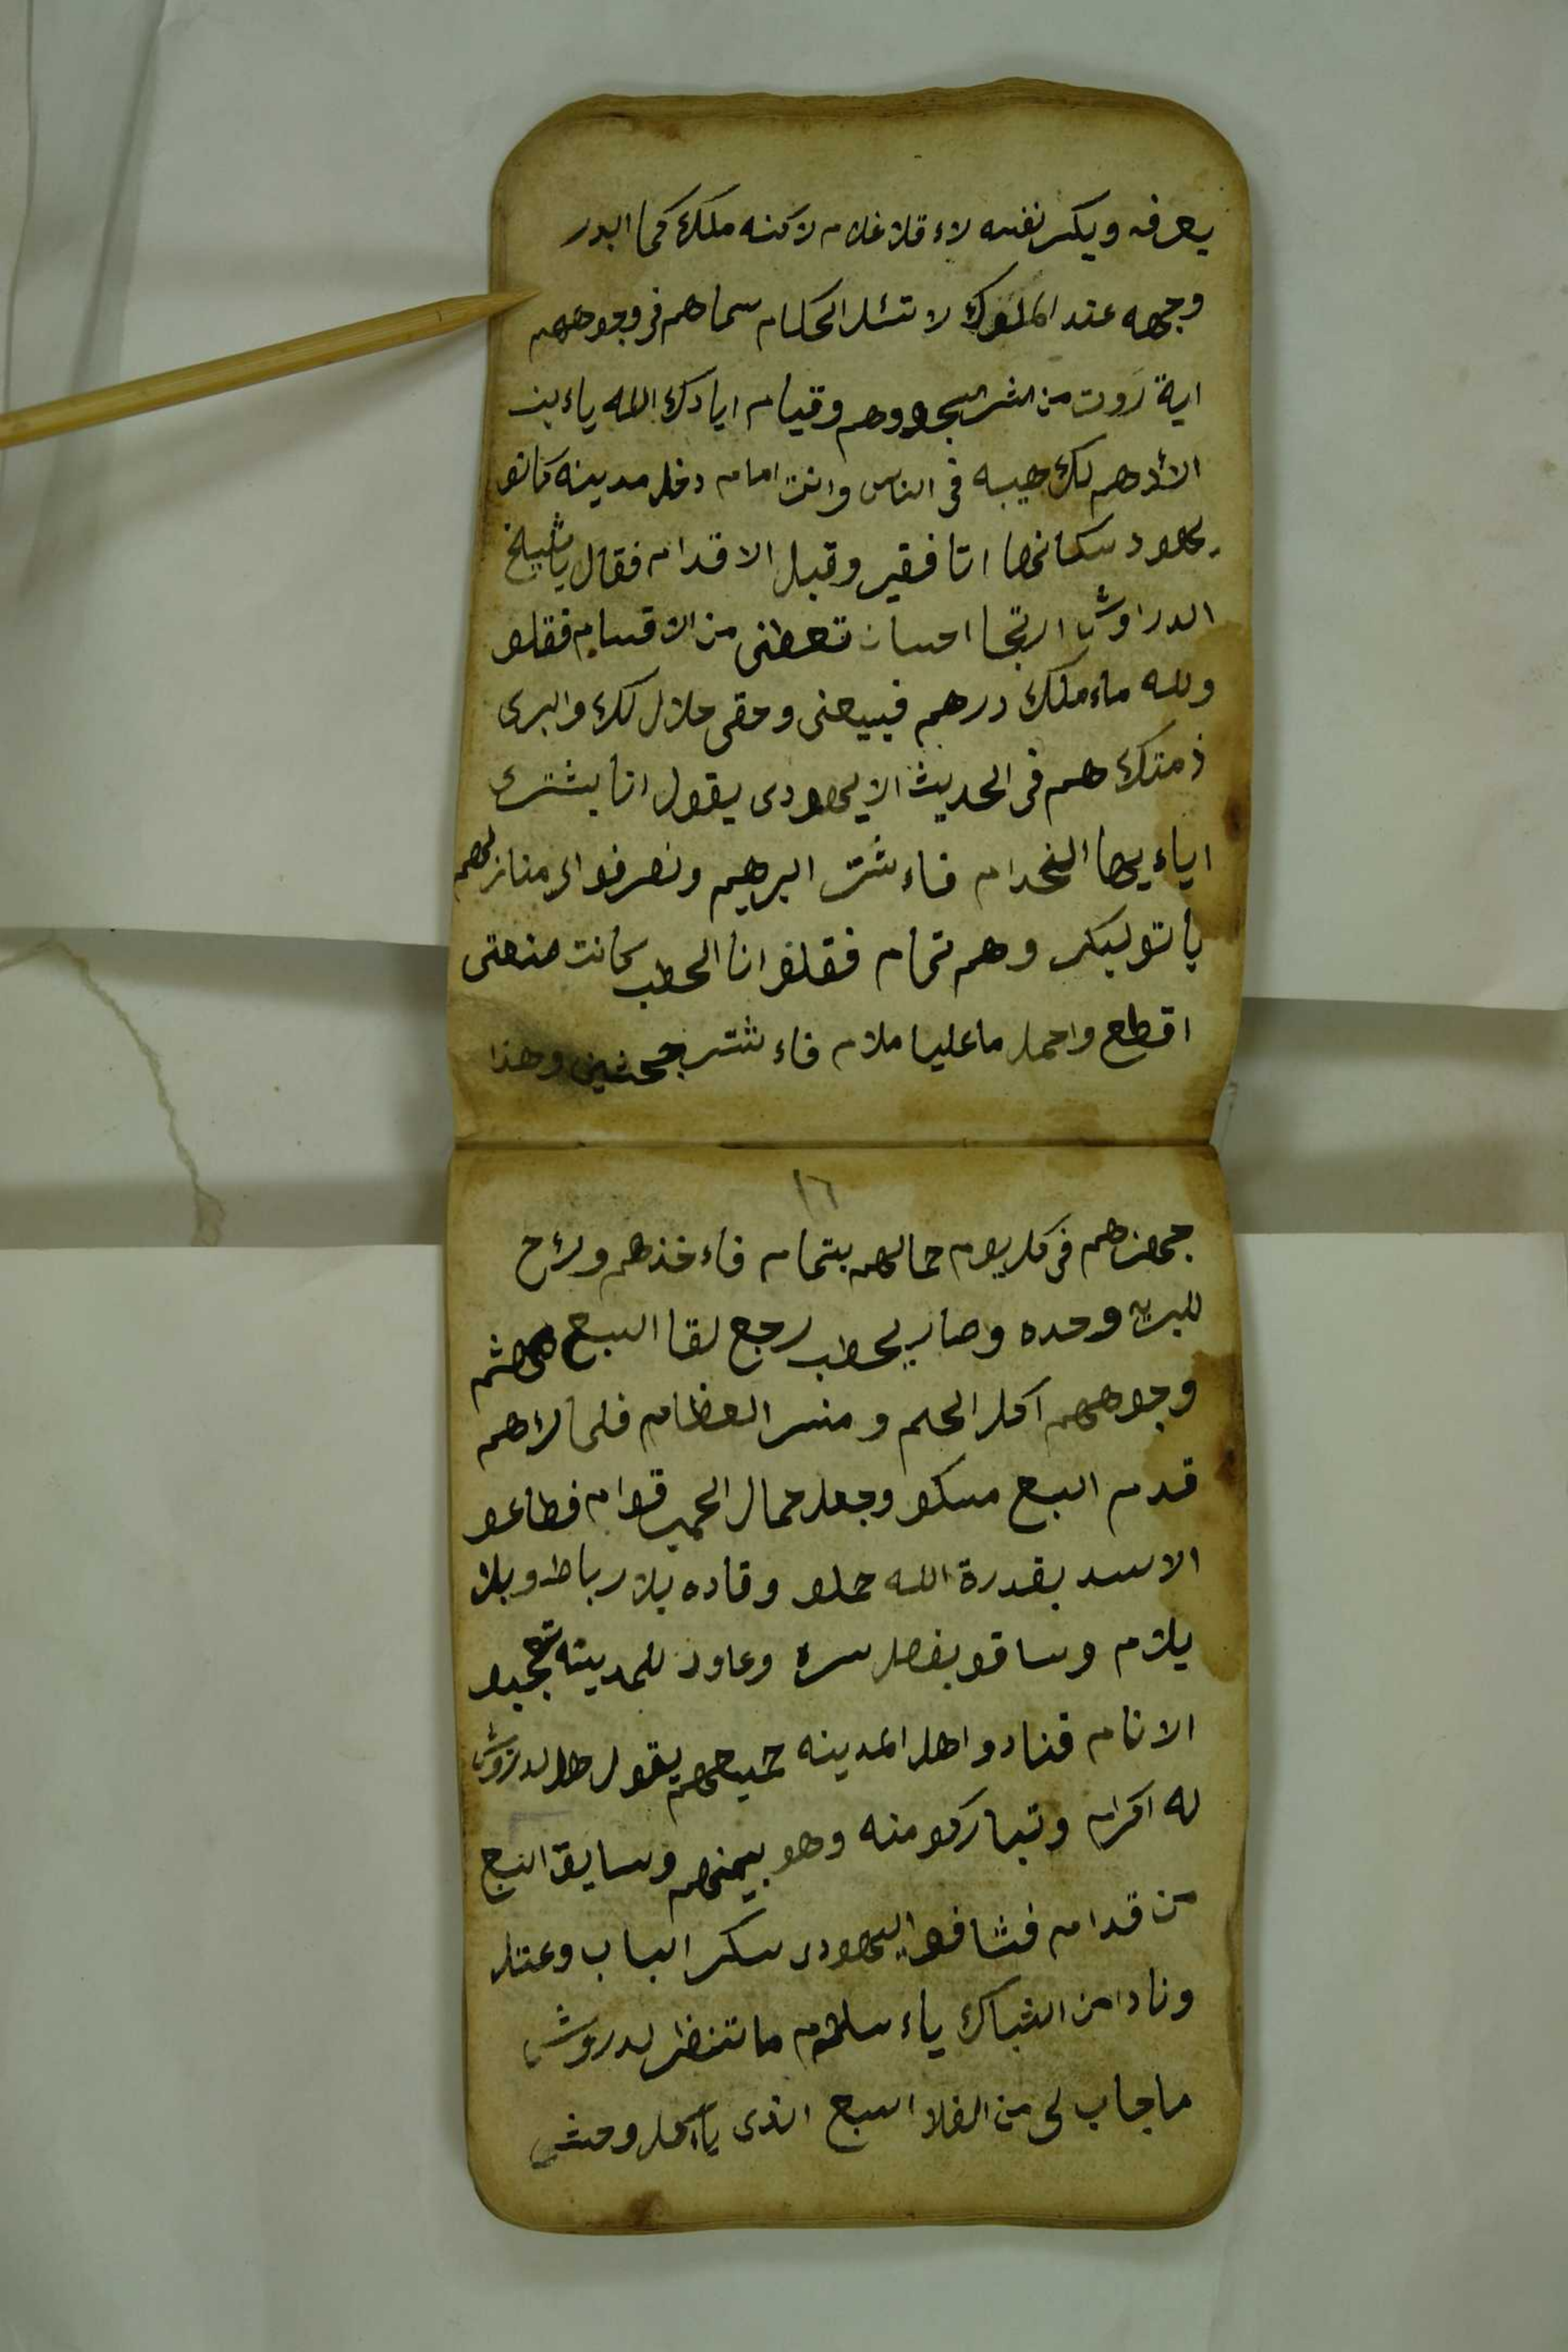 يعرفه ويكسر نفسه لاء قلا غلام لاكنه ملك كما البدر
وجهه عند الملوك لا تسئل الحكام سماهم في وجوههم
اية روت من اثر السجود وهم وقيام ايادك الله ياء بن
الأدهم لك هيبه في الناس وانت امام دخل مدينه كانو
يهود سكانها اتا فقير وقبل الاقدام فقال يا شيخ
الدراوش ارتجا احسان تعطني من الاقسام فقلو
ولله ماء ملك درهم فبيعني وحقي حلال لك وابري
ذمتك هم في الحديث الا يهودي يقول انا بشترك
اياء يها الخدام فاء شتر البرهيم ونصرفوا الى منازلهم
ياتو ليكر وهم تمام فقلو انا الحطب كانت صنعتي
اقطع واحمل ما عليا ملام فاء شتر جحشين وهذا
١٦
جهزهم في كل يوم حمالهم بتمام فاء خذهم وراح
للبريه وحده وصار يحطب رجع لقا السبع مهشم
وجوههم اكل الحلم ومنسر العظام فلما راهم
قدم السبع مسكو وجعل حمال الحمير قوام فطاعو
الاسد بقدرة الله حملو وقاده بلا رباط وبلا
يلزم وساقو بفضل سره وعاود للمدينه تعجبو
الانام فنادو اهل المدينه جميعهم يقول هل لدروش
له اكرام وتباركو منه وهو بيمنهم وسايق السبع
من قدام فشافو اليهودي سكر الباب وعتل
ونادا من الشباك ياء سلام ما تنظر لدروش
ما جاب لي من الفلا السبع الذي ياكل وحش